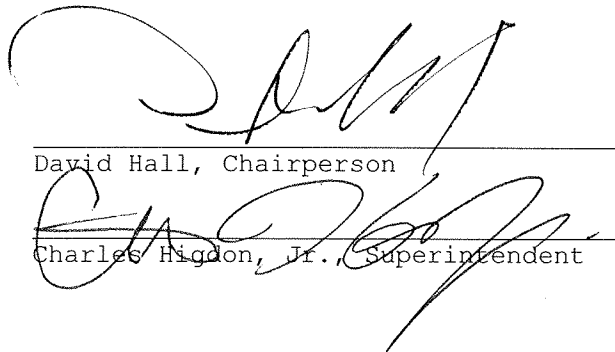 David Hall, Chairperson
Charles Higdon, Jr., Superintendent